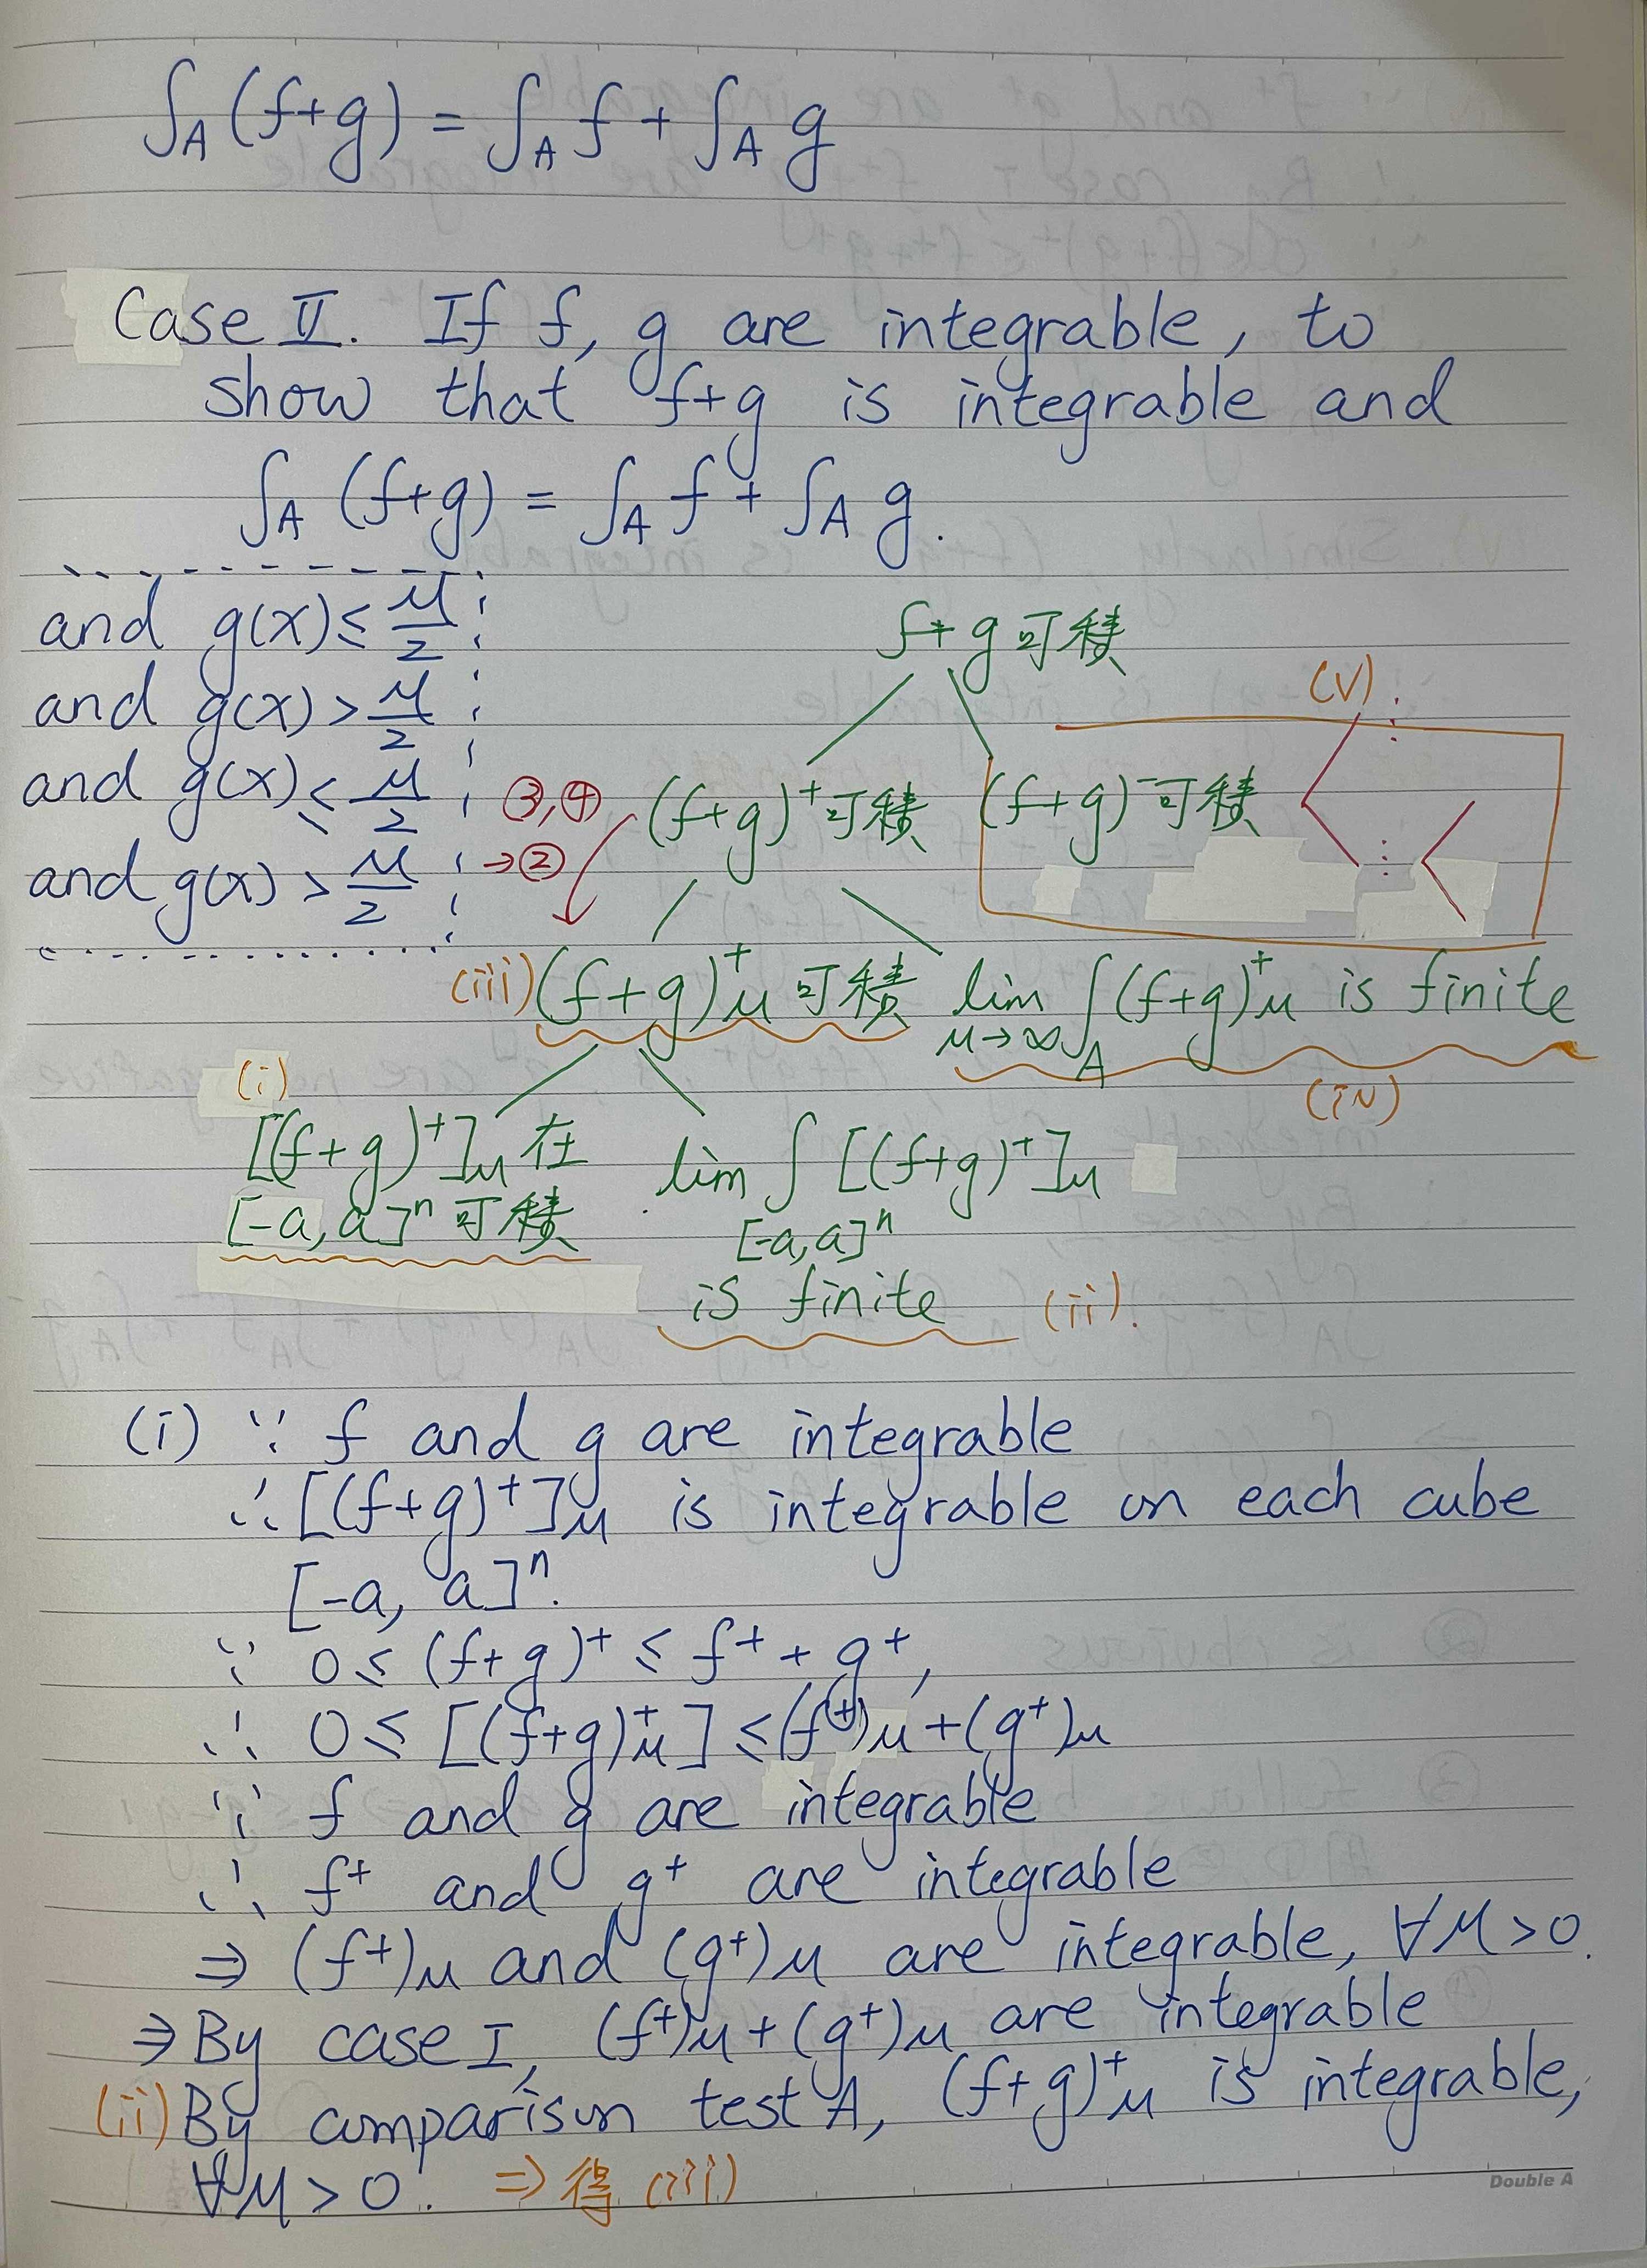 ∫_A (f+g) = ∫_A f + ∫_A g
Case II. If f, g are integrable, to
show that f+g is integrable and
∫_A (f+g) = ∫_A f + ∫_A g.
and g(x) ≤ M/2
and g(x) > M/2
and g(x) ≤ M/2
and g(x) > M/2
f+g 可積
(v)
③,④
→②
(f+g)⁺ 可積
(f+g)⁻ 可積
(iii) (f+g)⁺_M 可積
lim_{M→∞} ∫_A (f+g)⁺_M is finite
(iv)
(i)
[(f+g)⁺]_M 在
[-a, a]ⁿ 可積
lim ∫_{[-a,a]ⁿ} [(f+g)⁺]_M
is finite (ii).
(i) ∵ f and g are integrable
∴ [(f+g)⁺]_M is integrable on each cube
[-a, a]ⁿ.
∵ 0 ≤ (f+g)⁺ ≤ f⁺ + g⁺,
∴ 0 ≤ [(f+g)⁺_M] ≤ (f⁺)_M + (g⁺)_M
∵ f and g are integrable
∴ f⁺ and g⁺ are integrable
⇒ (f⁺)_M and (g⁺)_M are integrable, ∀M > 0.
⇒ By case I, (f⁺)_M + (g⁺)_M are integrable
(ii) By comparison test A, (f+g)⁺_M is integrable,
∀M > 0. ⇒ 得 (iii)
Double A